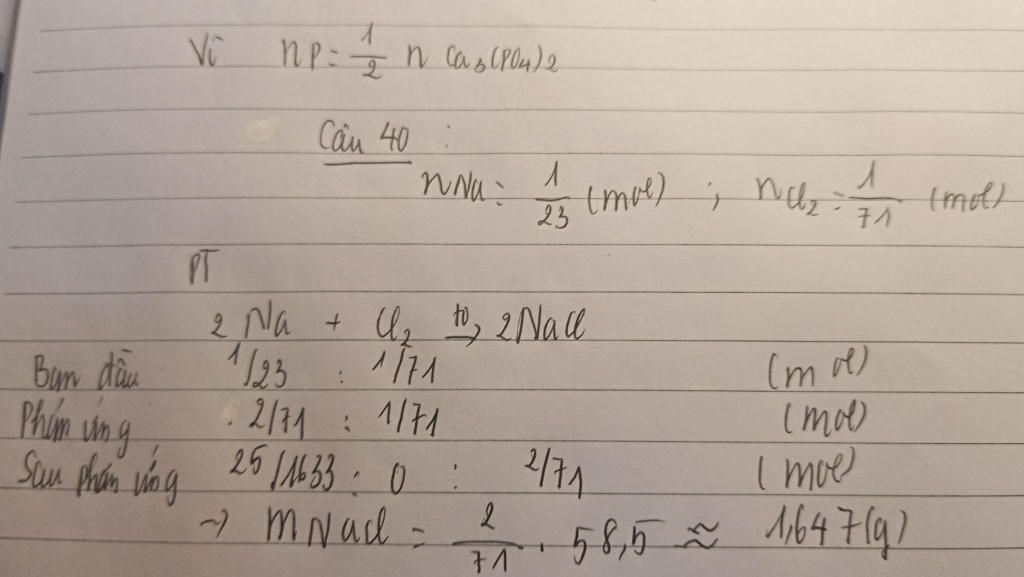 Vì nP = 1/2 n Ca3(PO4)2
Câu 40 :
nNa = 1/23 (mol) ; nCl2 = 1/71 (mol)
PT
2 Na + Cl2 to→ 2NaCl
Ban đầu 1/23 : 1/71 (mol)
Phản ứng : 2/71 : 1/71 (mol)
Sau phản ứng 25/1633 : 0 : 2/71 (mol)
→ mNaCl = 2/71 . 58,5 ≈ 1,647(g)